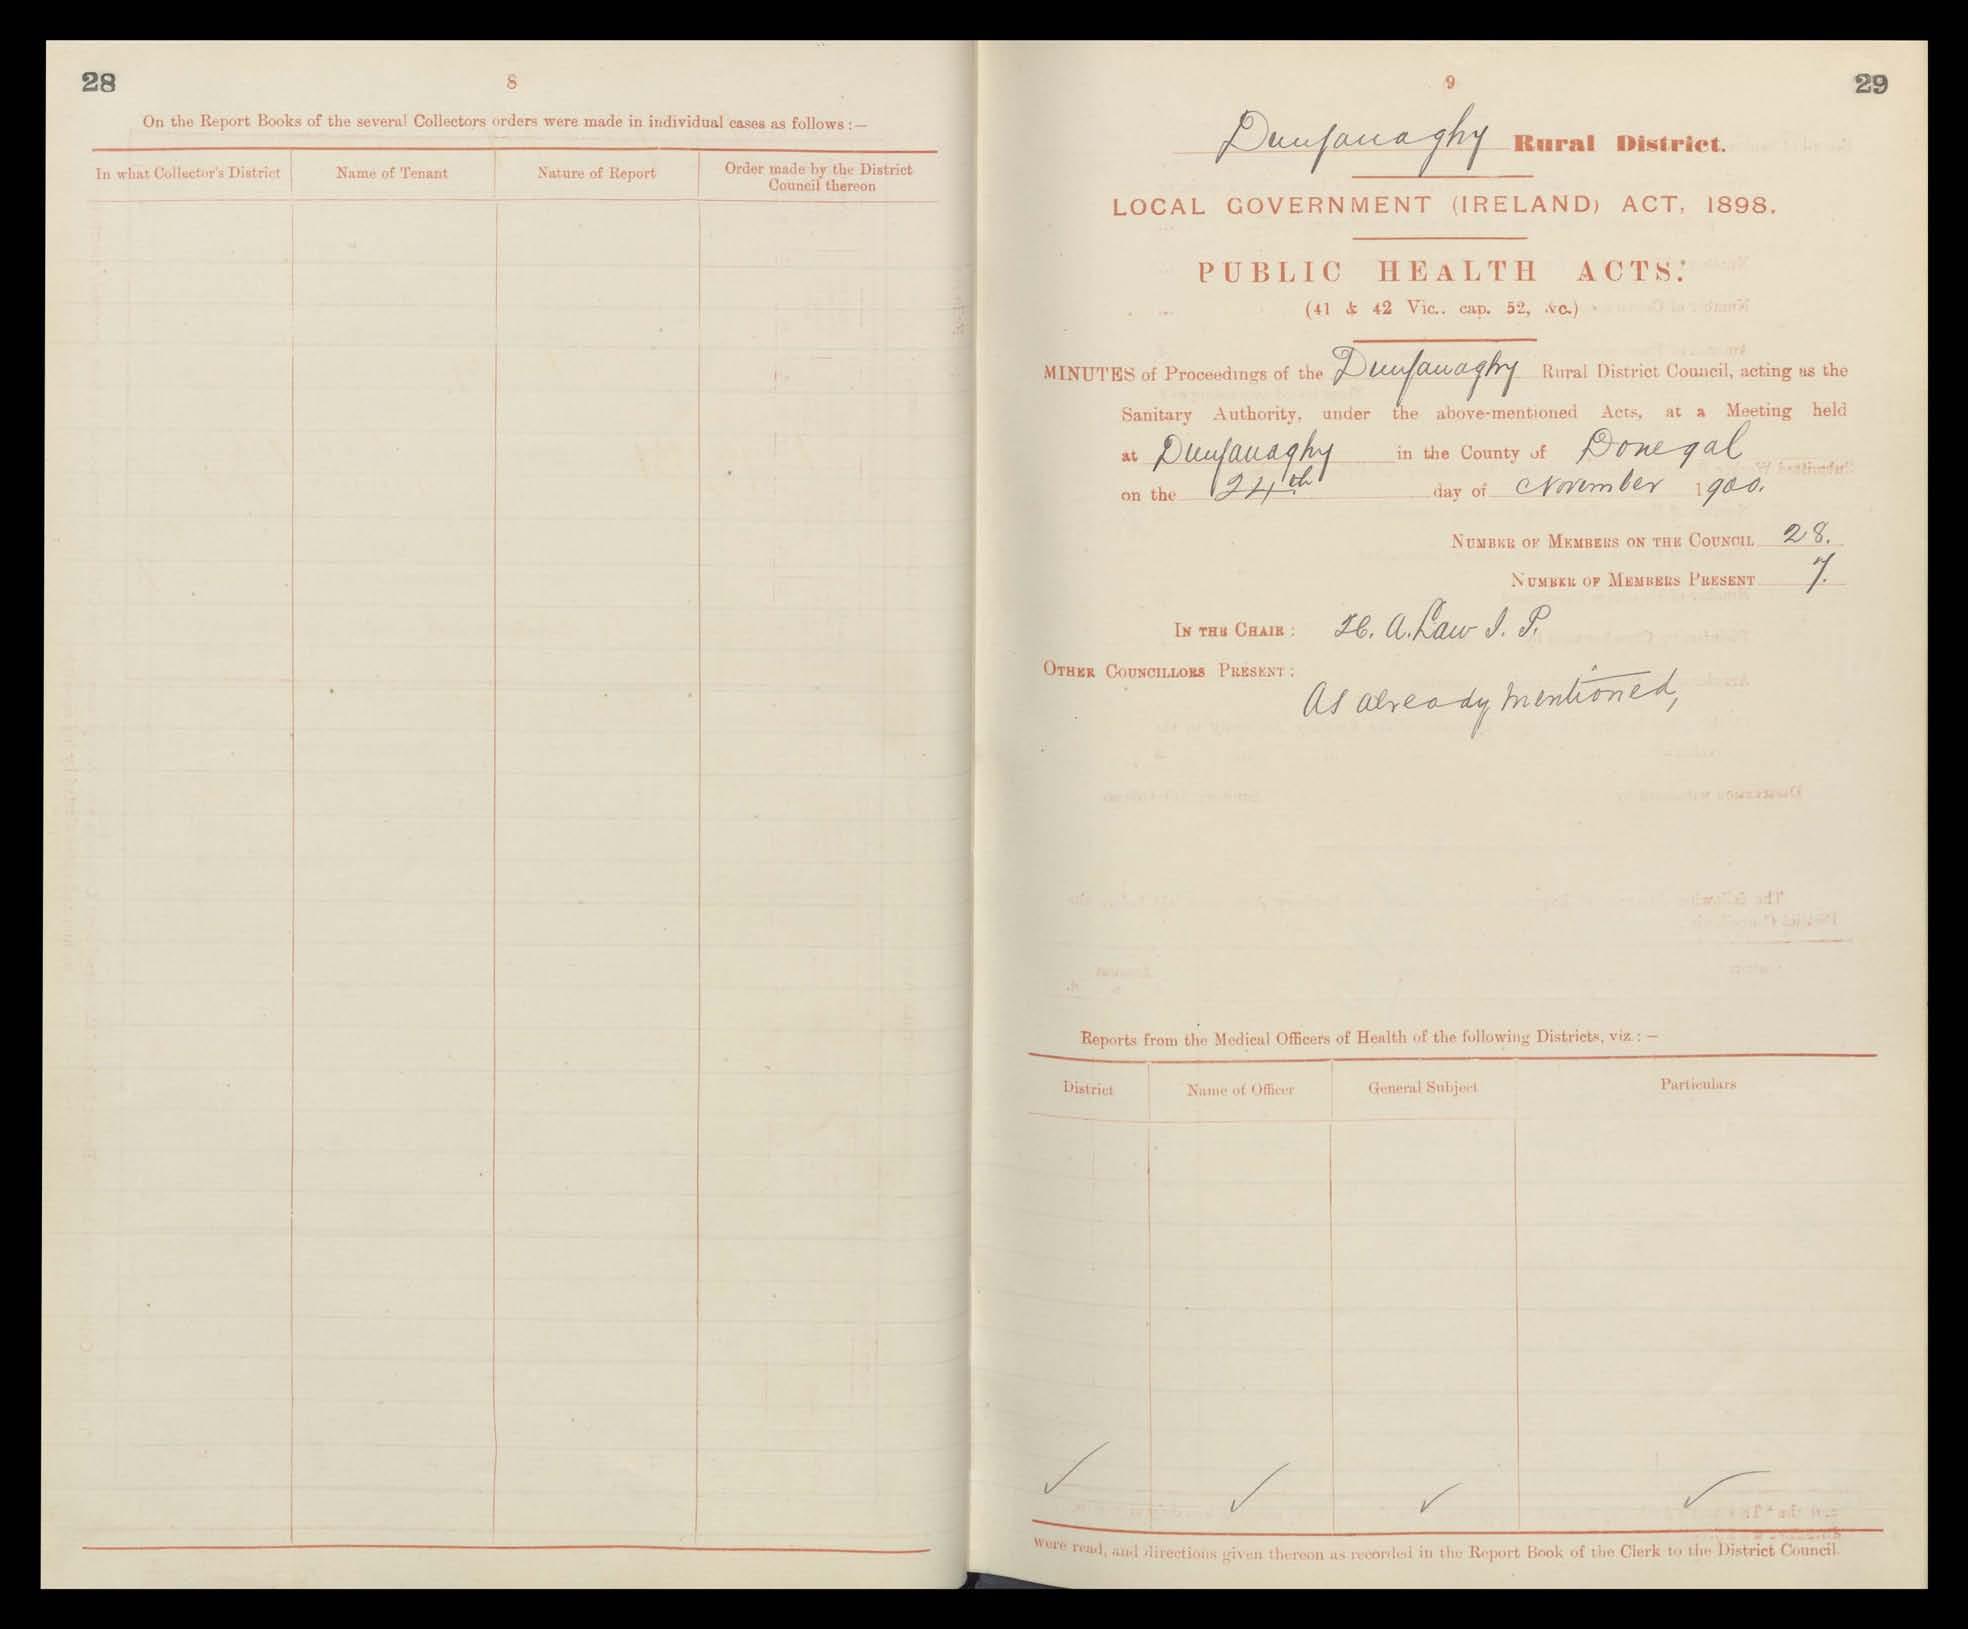 28
8
On the Report Books of the several Collectors orders were made in individual cases as follows :—
In what Collector's District
Name of Tenant
Nature of Report
Order made by the District
Council thereon
9
29
Dunfanaghy Rural District.
LOCAL GOVERNMENT (IRELAND) ACT, 1898.
PUBLIC HEALTH ACTS.
(41 & 42 Vic.. cap. 52, &c.)
MINUTES of Proceedings of the Dunfanaghy Rural District Council, acting as the
Sanitary Authority, under the above-mentioned Acts, at a Meeting held
at Dunfanaghy in the County of Donegal
on the 24th day of November 1900.
NUMBER OF MEMBERS ON THE COUNCIL 28.
NUMBER OF MEMBERS PRESENT 7.
IN THE CHAIR : H. A. Law J. P.
OTHER COUNCILLORS PRESENT :
As already mentioned,
Reports from the Medical Officers of Health of the following Districts, viz.: —
District
Name of Officer
General Subject
Particulars
were read, and directions given thereon as recorded in the Report Book of the Clerk to the District Council.